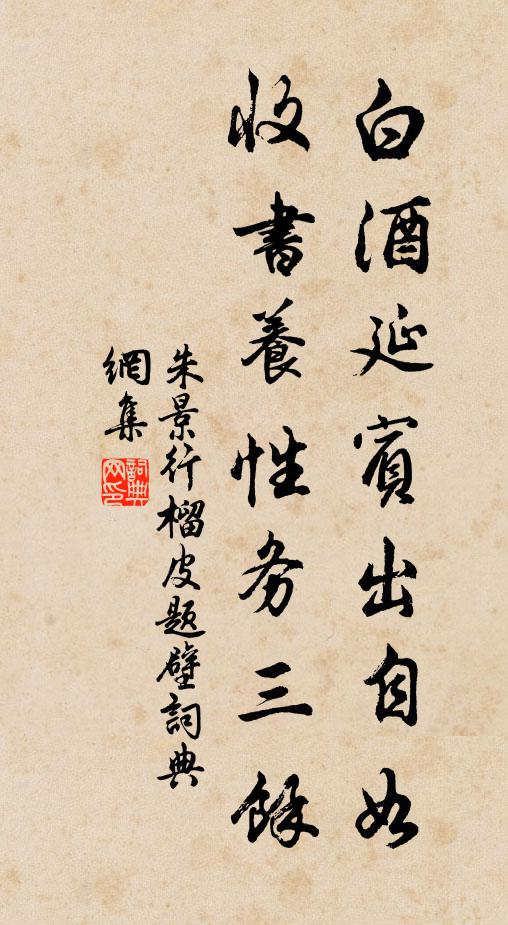 白酒延賓出自如
收書養性务三餘
朱景行榴皮題壁詞典
網集
詞典
网印